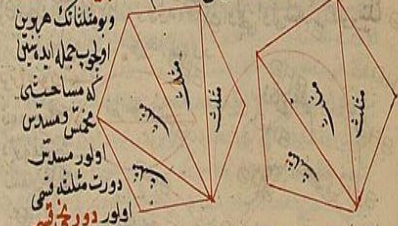 وبو مثلثاتك هر برين
اولچوب جمله ايده سين
كه مساحتى
مخمس و مسدس
اولور مسدس
دورت مثلثه قسمى
اولور دورنجى قسم
مثلث
مثلث
مثلث
مثلث
مثلث
مثلث
مثلث